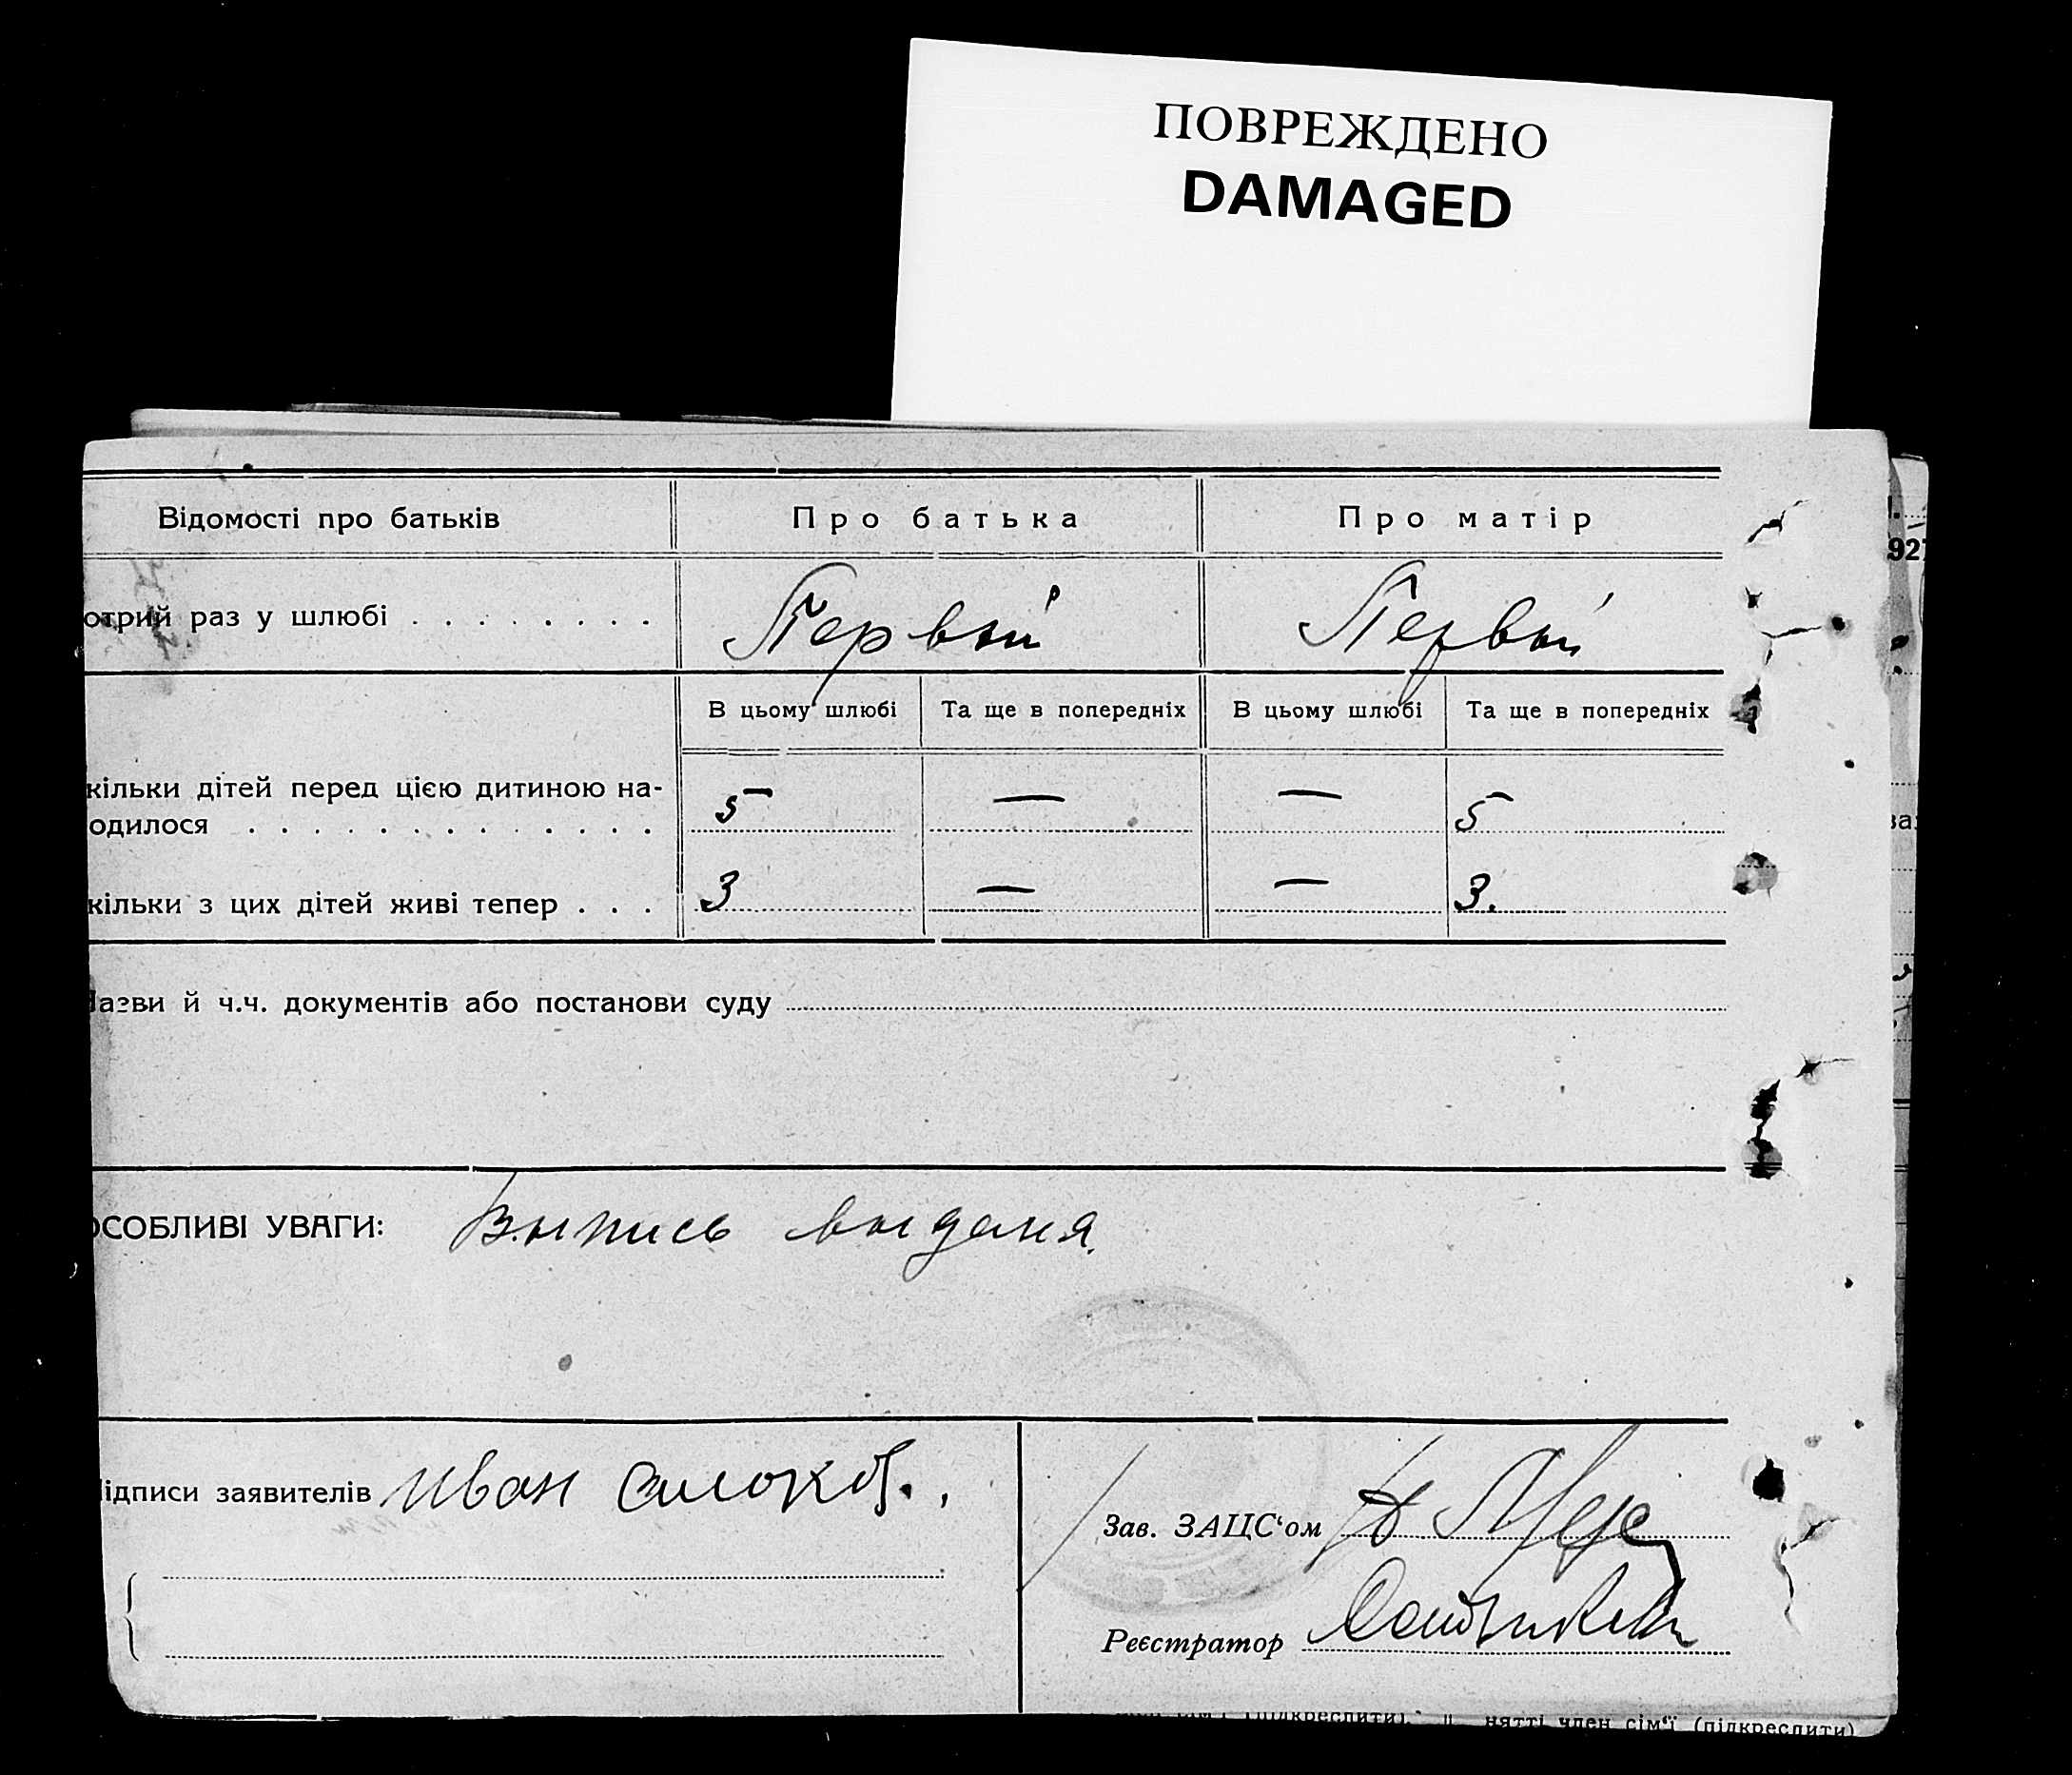 ПОВРЕЖДЕНО
DAMAGED
Відомості про батьків Про батька Про матір
отрий раз у шлюбі . . . . . . . . Первый Первый
В цьому шлюбі Та ще в попередніх В цьому шлюбі Та ще в попередніх
кільки дітей перед цією дитиною на-
одилося . . . . . . . . . . . . . 5 — — 5
кільки з цих дітей живі тепер . . . 3 — — 3.
Назви й ч.ч. документів або постанови суду
ОСОБЛИВІ УВАГИ: Выпись выдана.
ідписи заявителів Иван
Зав. ЗАЦС‘ом
Реєстратор
(підкреслити). нятті член сім‘ї (підкреслити)
927